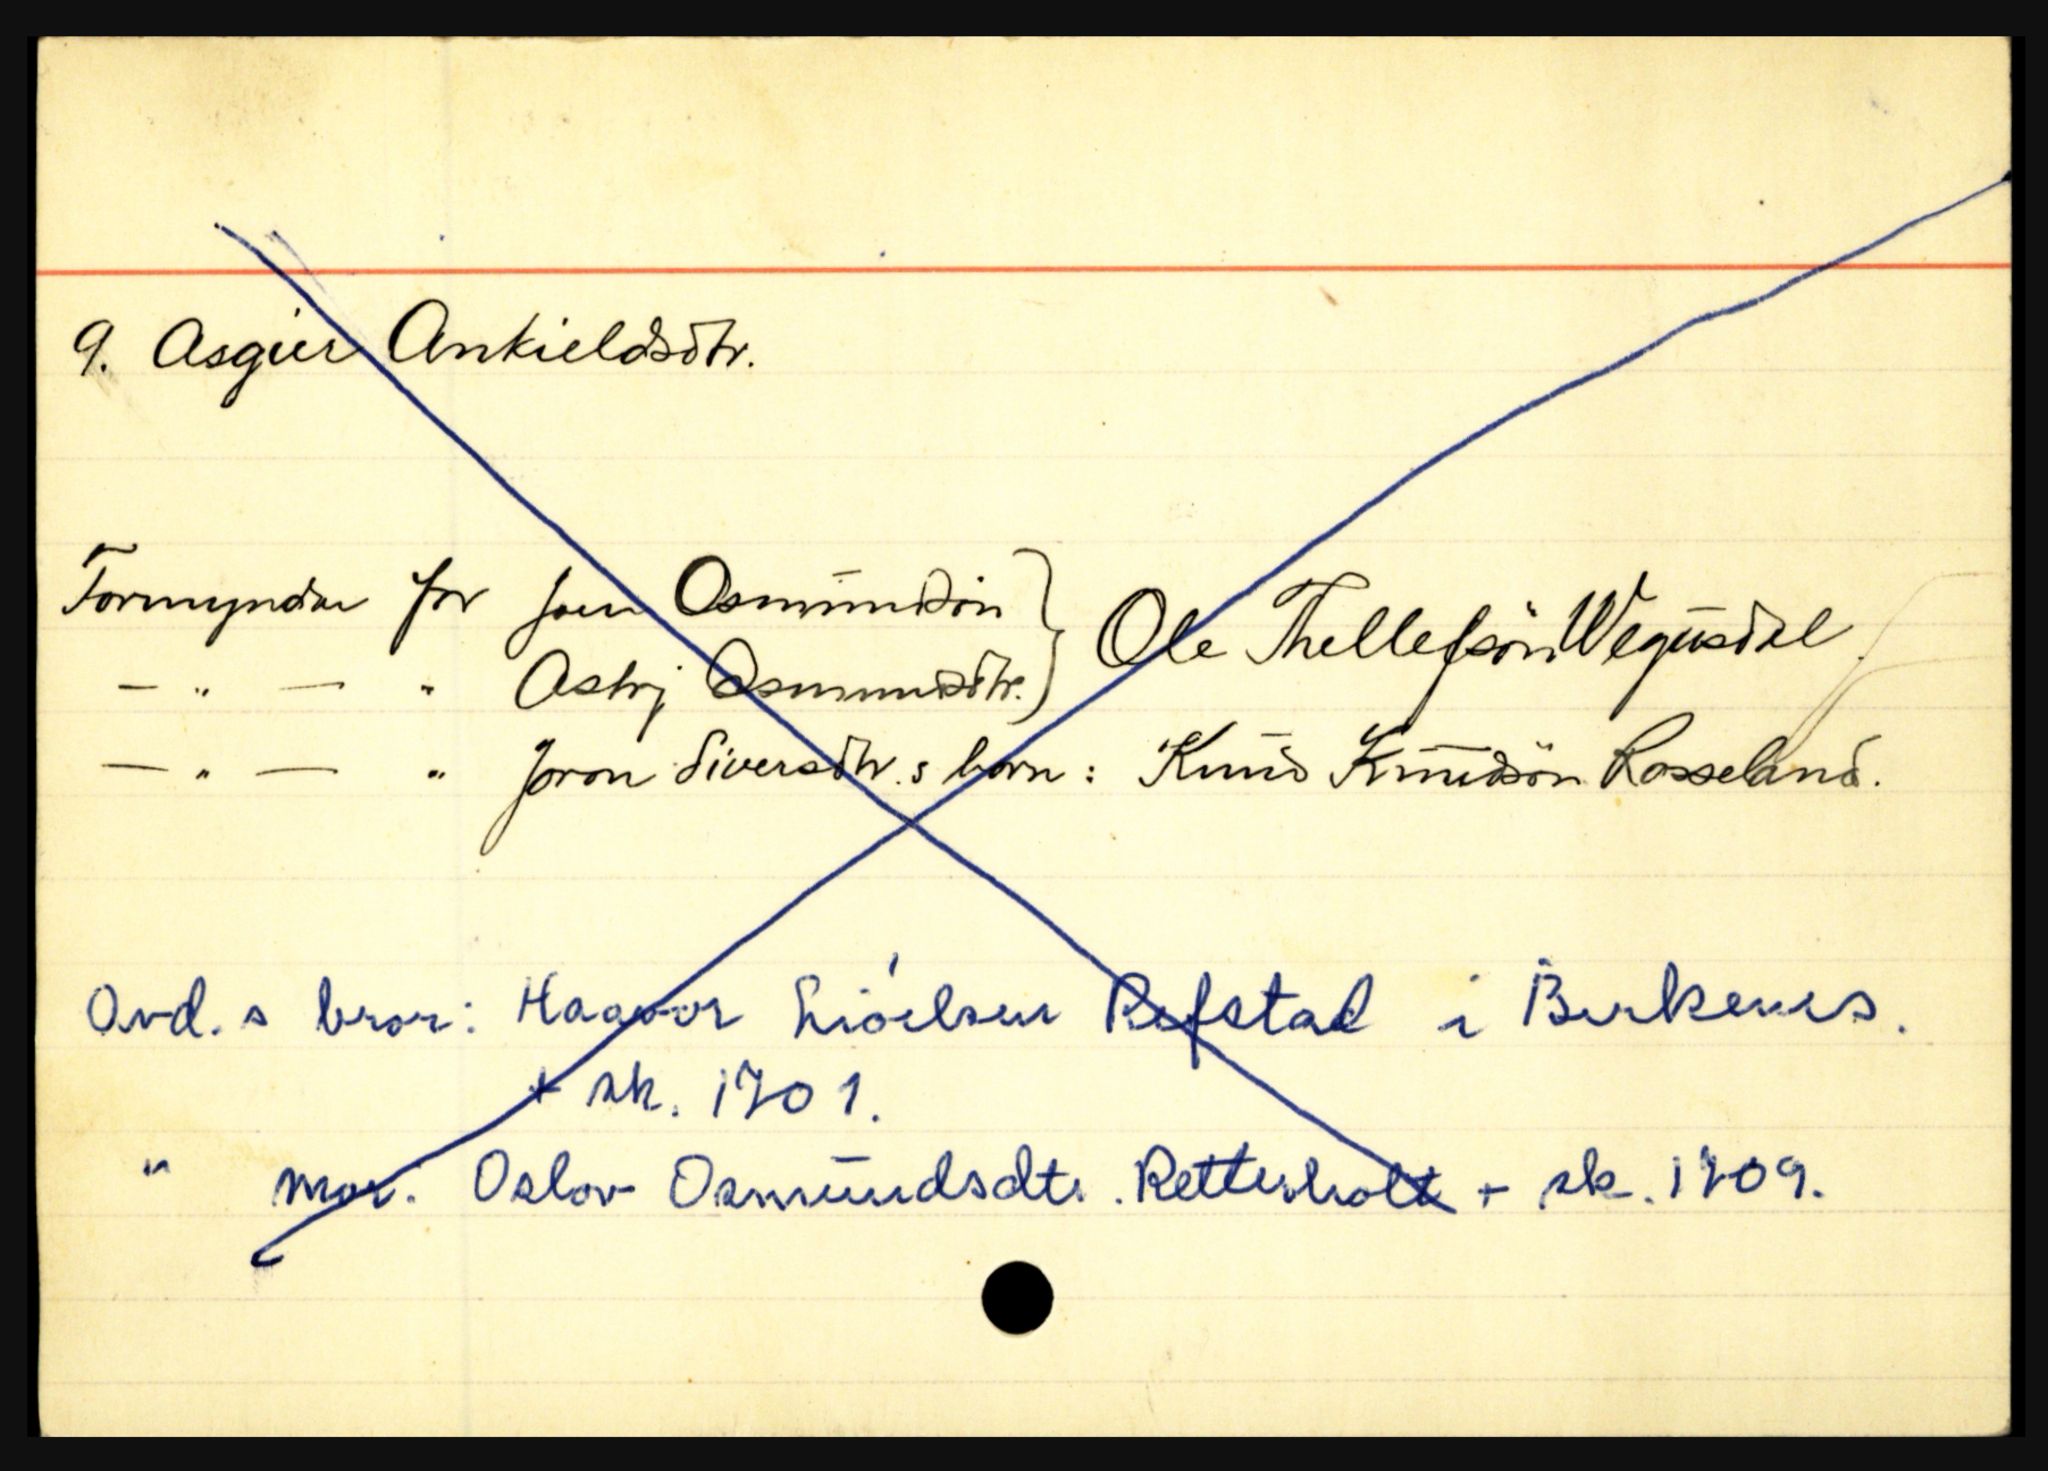 9. Asgier Ankieldsdtr.
Formyndar for Joen Osmundsön } Ole Thellefsön Wegusdal
— " — " Astrj Osmundsdtr. }
— " — " Joron Siversdtr.s born : Knud Knudsön Rosseland.
Avd. s bror: Haavor Liöelsen Refstad i Birkenes.
+ sk. 1701.
" mor: Oslov Osmundsdtr. Retterholt + sk. 1709.